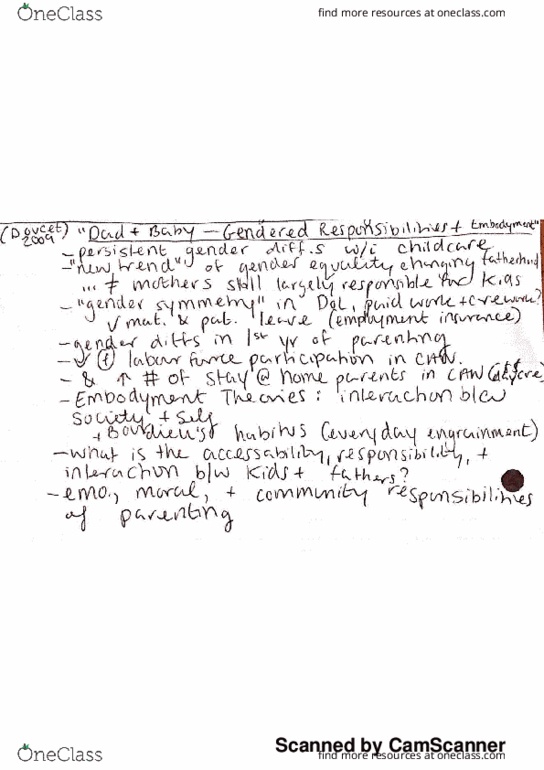 OneClass
find more resources at oneclass.com
(Doucet 2009) "Dad + Baby – Gendered Responsibilities + Embodyment"
- persistent gender diff.s w/i childcare
- "new trend" of gender equality changing fatherhood
... ≠ mothers still largely responsible for kids
- "gender symmetry" in D&L, paid work + carework?
√ mat. & pat. leave (employment insurance)
- gender diffs in 1st yr of parenting
labour force participation in CAN.
- & ↑ # of stay @ home parents in CAN
- Embodyment Theories: interaction b/w
society + self
+ Bourdieu's habitus (everyday engrainment)
- what is the accessability, responsibility, +
interaction b/w kids + fathers?
- emo., moral, + community responsibilities
of parenting
Scanned by CamScanner
OneClass
find more resources at oneclass.com